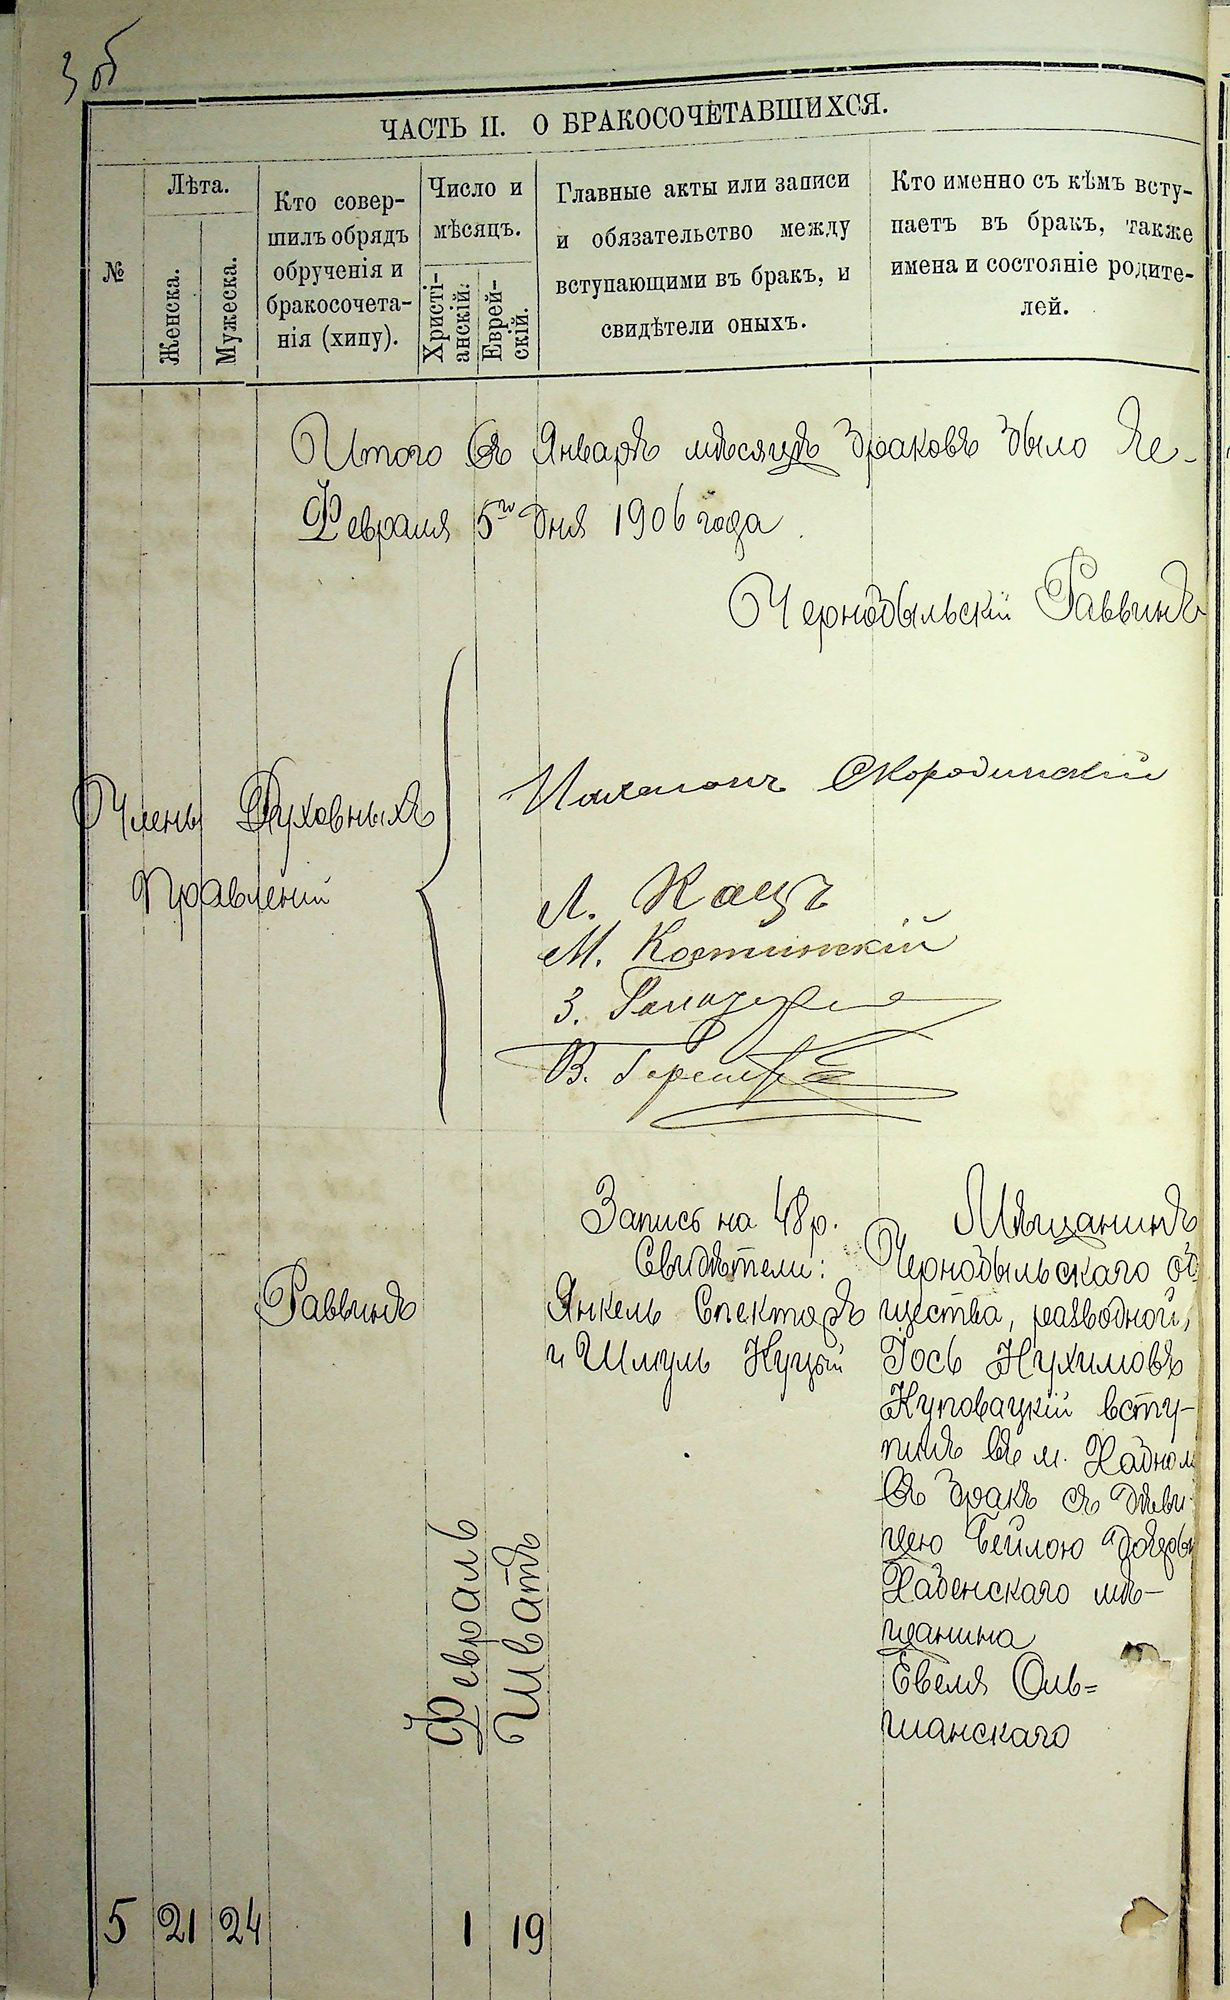 3 об
ЧАСТЬ II. О БРАКОСОЧЕТАВШИХСЯ.
№
Лѣта.
Женска.
Мужеска.
Кто совер-
шилъ обрядъ
обрученія и
бракосочета-
нія (хипу).
Число и
мѣсяцъ.
Христі-
анскій.
Еврей-
скій.
Главные акты или записи
и обязательство между
вступающими въ бракъ, и
свидѣтели оныхъ.
Кто именно съ кѣмъ всту-
паетъ въ бракъ, также
имена и состояніе родите-
лей.
Итого въ Январѣ мѣсяцѣ браковъ было че-
Февраля 5го дня 1906 года
Чернобыльскій Раввинъ
Члены Духовныхъ
Правленій
Скородинскій
Л. Кацъ
М. Костинскій
З.
В.
Раввинъ
Февраль
Шватъ
Запись на 48 р.
Свидѣтели:
Янкель Спекторъ
и Шмуль Куцый
Мѣщанинъ
Чернобыльскаго об
щества, разводной,
Іось Нухимовъ
Куповацкій всту-
пилъ въ м. Хабном
въ бракъ съ дѣви-
цею Бейлою дочерью
Хабенскаго мѣ-
щанина
Евеля Оль=
шанскаго
5 21 24 1 19